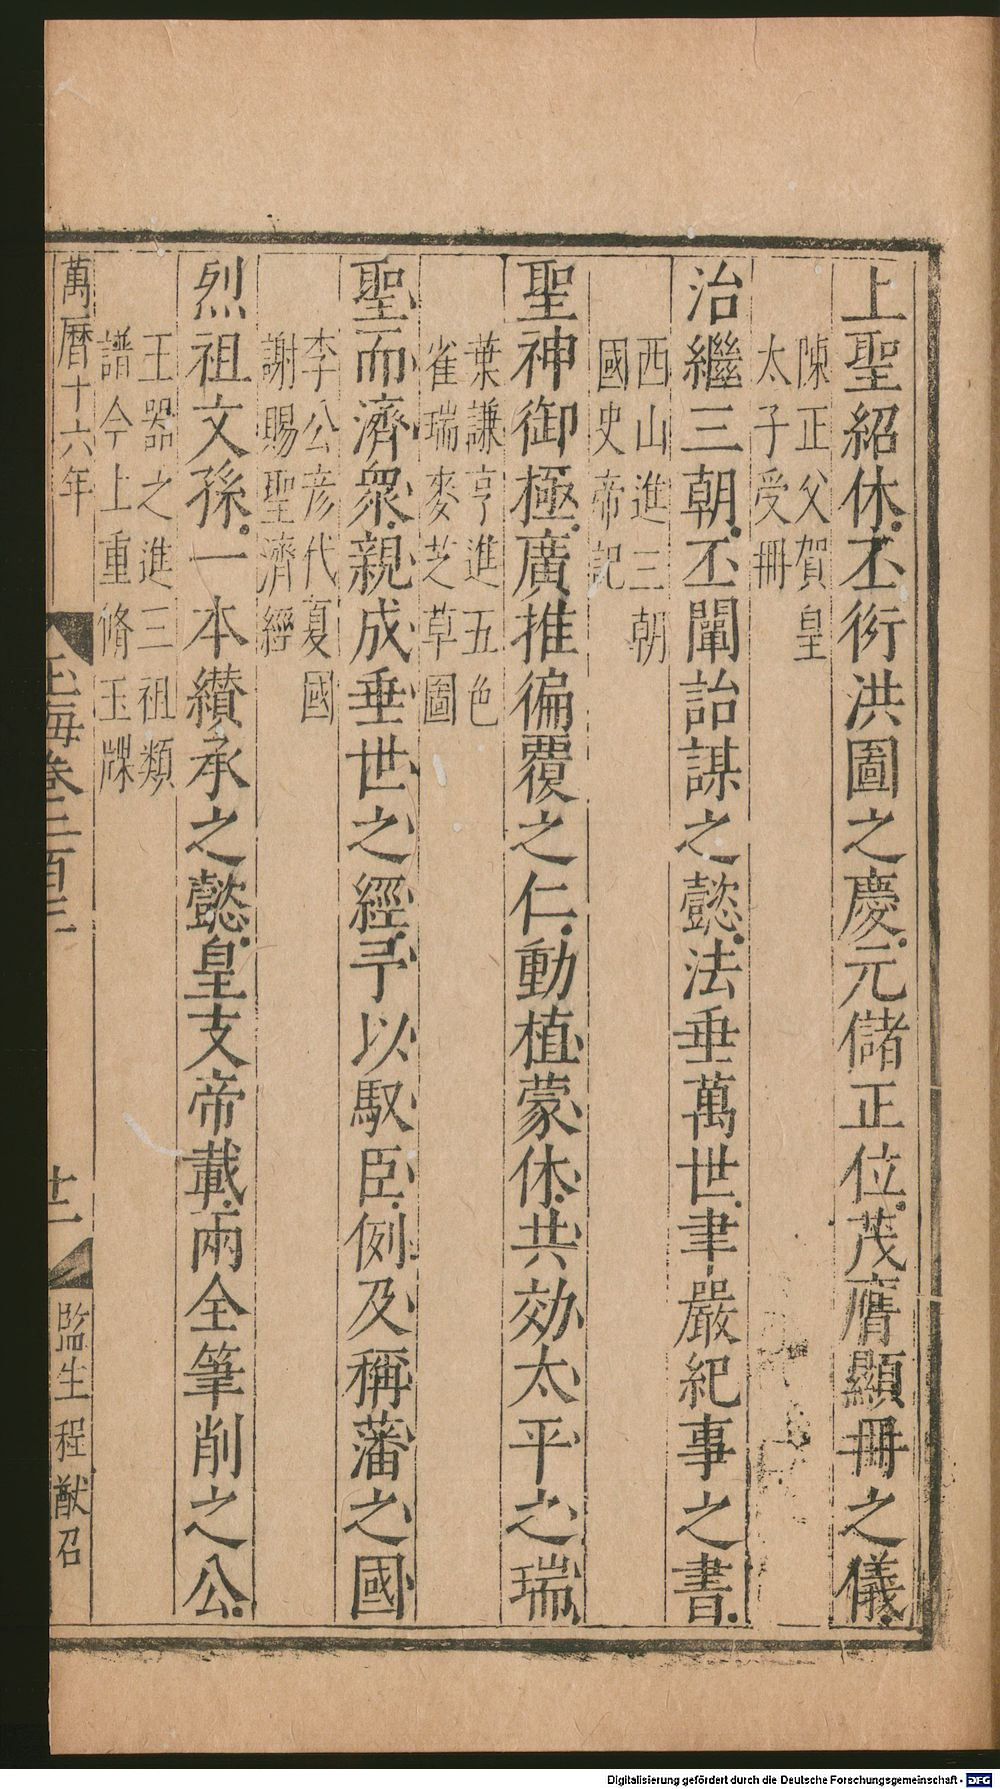 上聖紹休丕衍洪圖之慶元儲正位茂膺顯冊之儀
陳正父賀皇
太子受冊
治繼三朝丕闡詒謀之懿法垂萬世聿嚴紀事之書
西山進三朝
國史帝記
聖神御極廣推徧覆之仁動植蒙休共効太平之瑞
葉謙亨進五色
雀瑞麥芝草圖
聖而濟衆親成垂世之經予以馭臣例及稱藩之國
李公彦代夏國
謝賜聖濟經
烈祖文孫一本纘承之懿皇支帝載兩全筆削之公
王器之進三祖類
譜今上重脩玉牒
萬曆十六年
玉海卷二百三
十二
監生程猷召
Digitalisierung gefördert durch die Deutsche Forschungsgemeinschaft - DFG